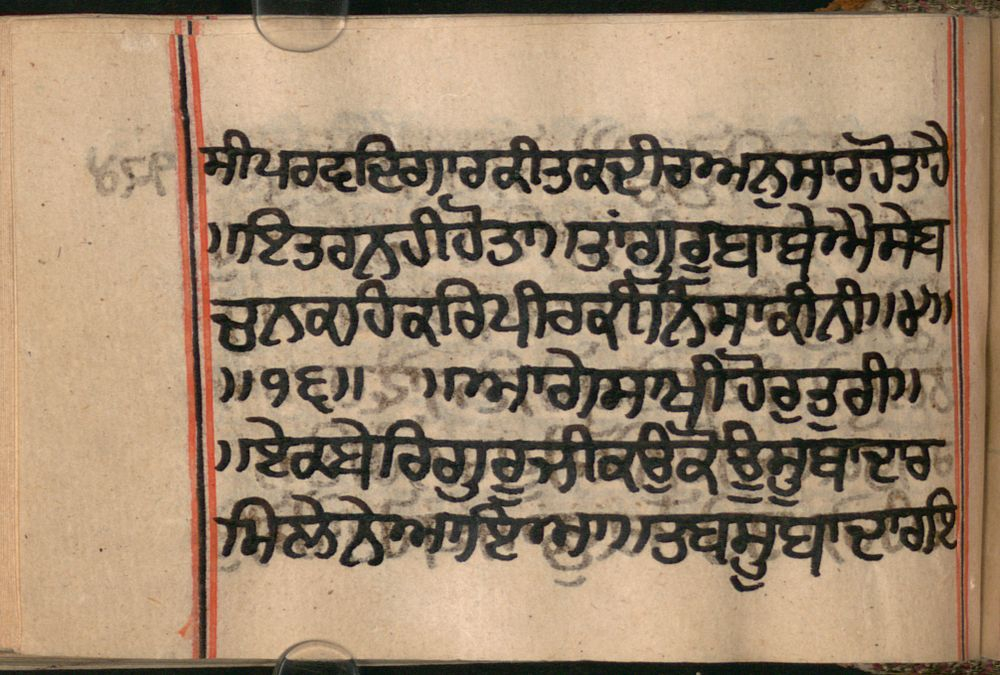 ਸੀਪਰਵਦਿਗਾਰਕੀਤਕਦੀਰਅਨੁਸਾਰਹੋਤਾਹੈ
॥ਇਤਰਨਹੀਹੋਤਾ॥ਤਾਂਗੁਰੂਬਾਬੇਐਸੇਬ
ਚਨਕਹਿਕਰਿਪੀਰਕੀਨਿਸਾਕੀਨੀ॥੪॥
॥੧੬॥ ॥ਆਗੇਸਾਖੀਹੋਰੁਤੁਰੀ॥
॥ਏਕਬੇਰਿਗੁਰੂਜੀਕਉਕੋਊਸੂਬਾਦਾਰ
ਮਿਲੇਨੇਆਇਆ॥ਤਬਸੂਬਾਦਾਰਇ